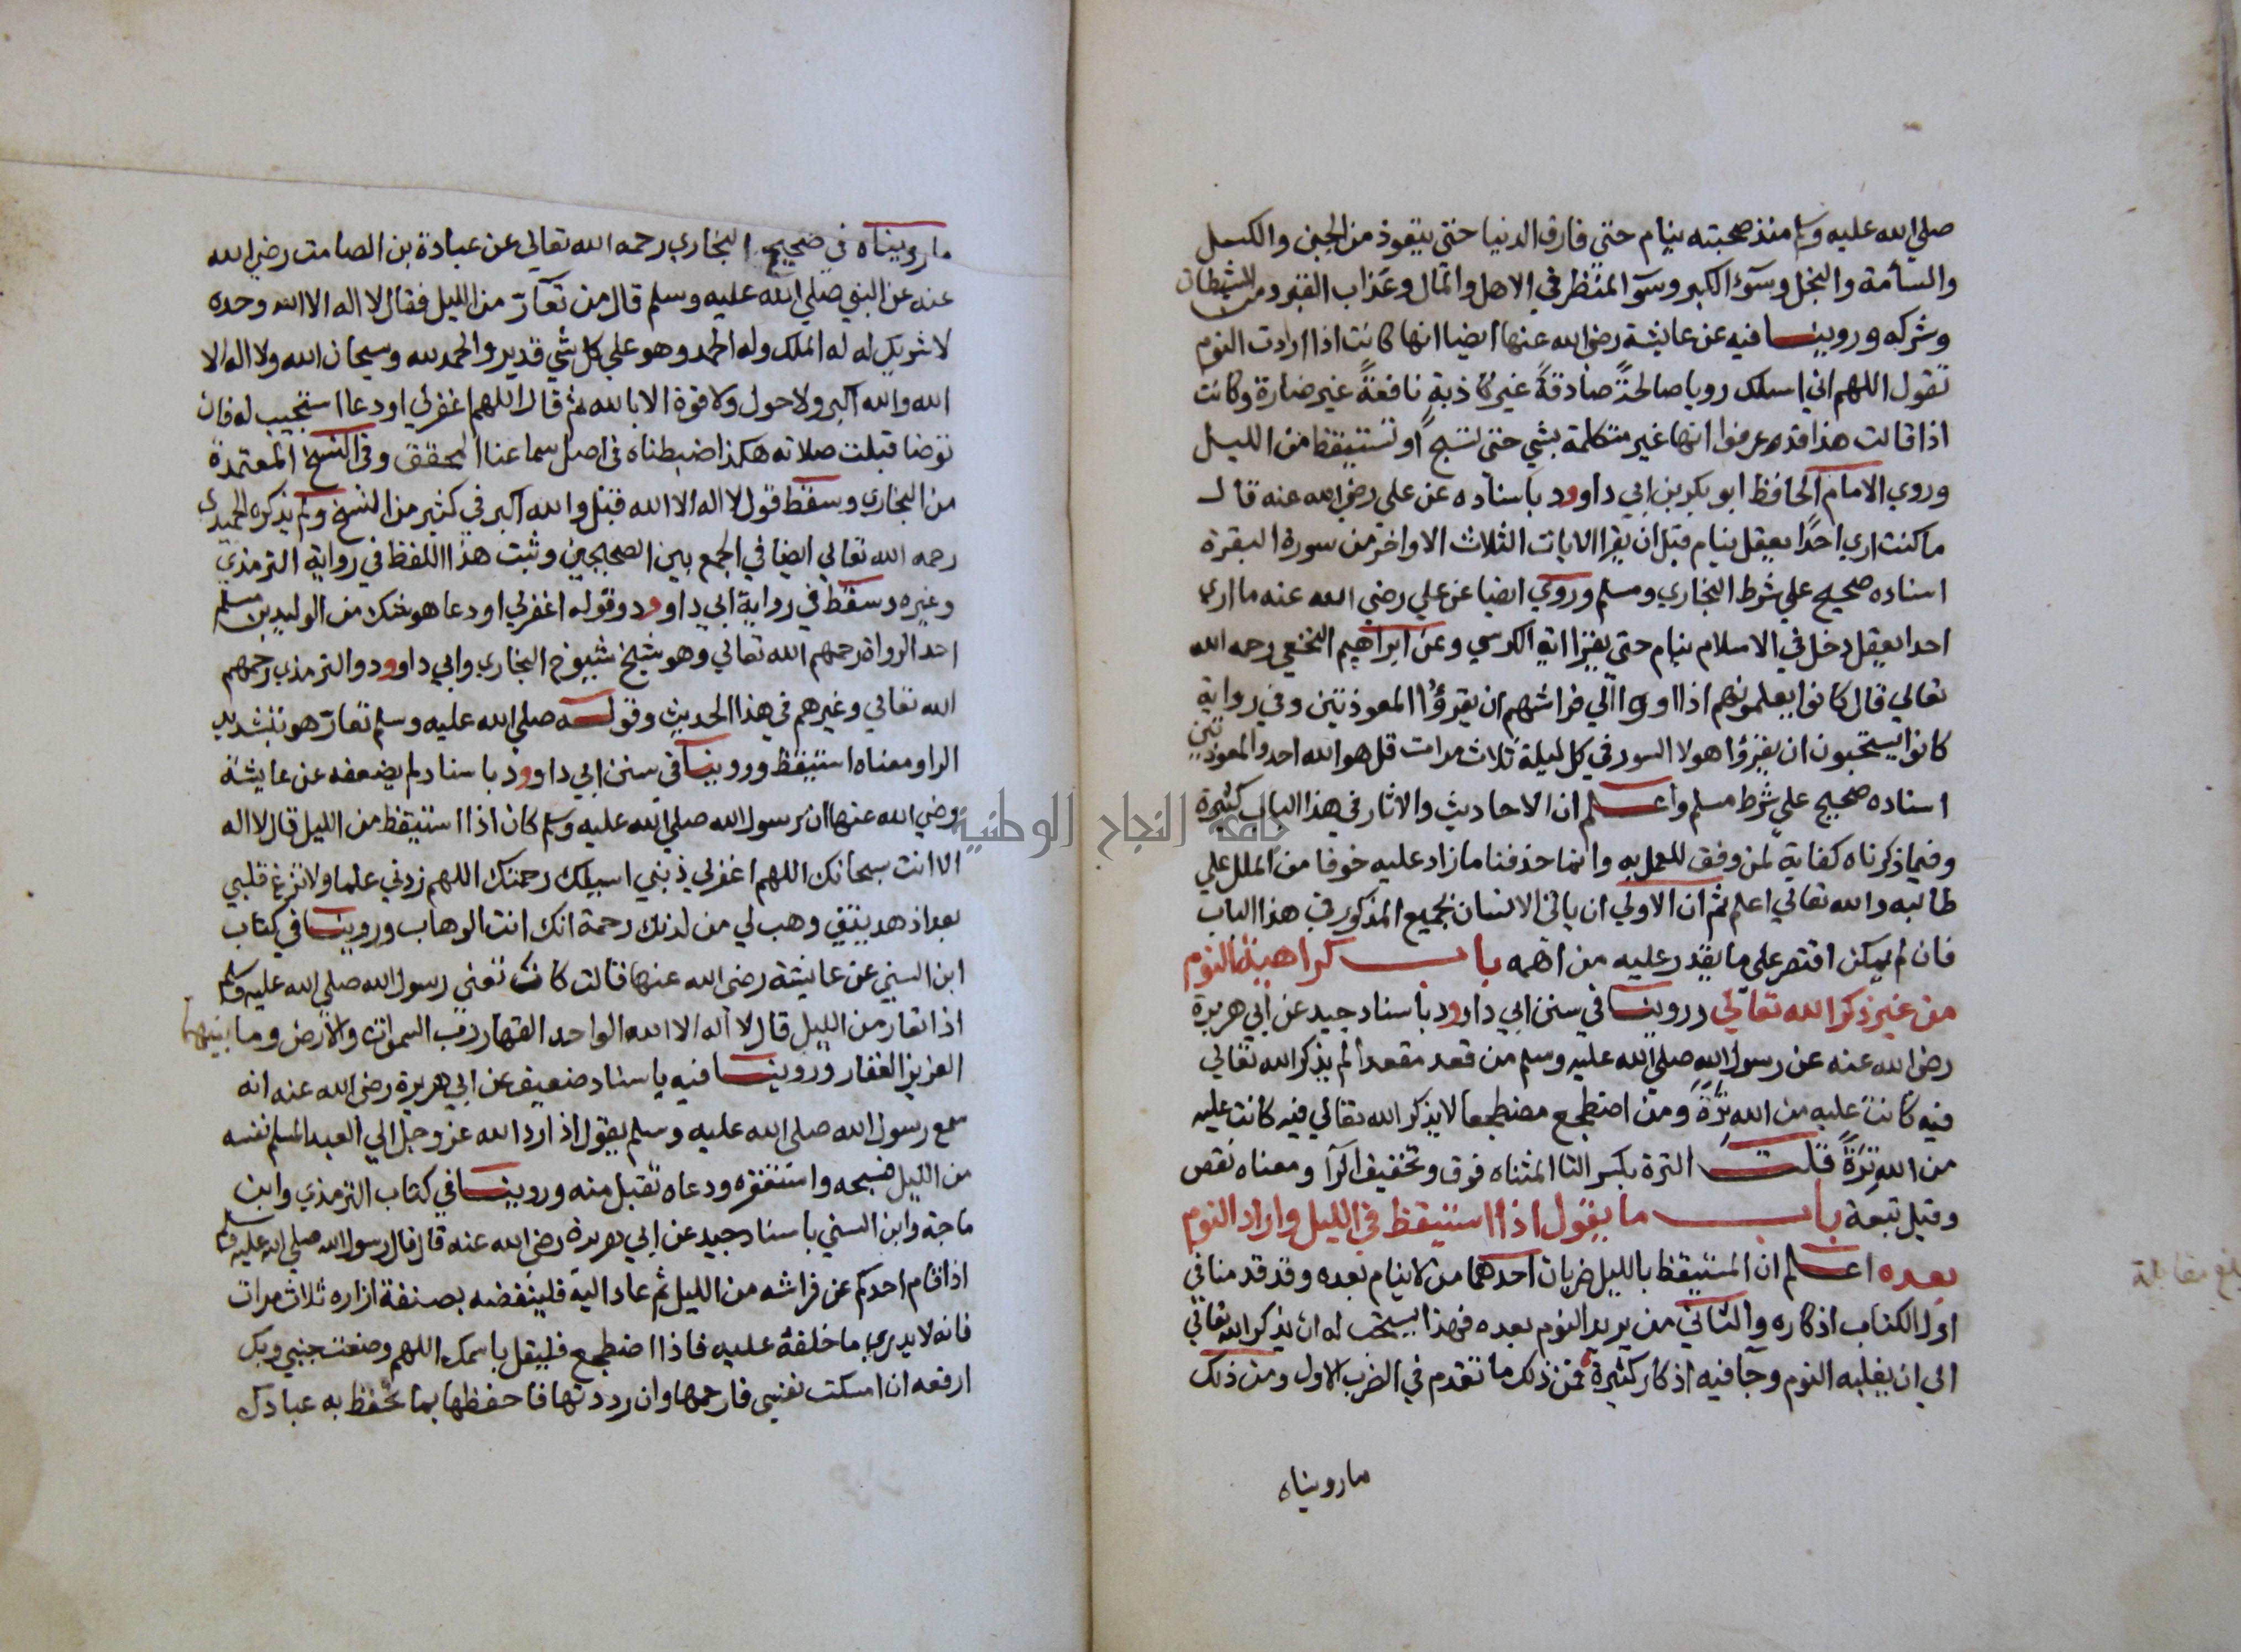 صلي الله عليه وسلم منذ صحبته ينام حتي فارق الدنيا حتي يتعوذ من الجبن والكسل
والسآمة والبخل وسوء الكبر وسوء المنظر في الاهل والمال وعذاب القبر ومن الشيطان
وشركه وروينا فيه عن عايشة رضي الله عنها ايضا انها كانت اذا ارادت النوم
تقول اللهم اني اسلك رويا صالحةً صادقةً غير كاذبةٍ نافعةً غير ضارة وكانت
اذا قالت هذا قد عرفوا انها غير متكلمة بشي حتي تصبح او تستيقظ من الليل
وروي الامام الحافظ ابو بكر بن ابي داوود باسناده عن علي رضي الله عنه قال
ما كنت اري احدًا يعقل ينام قبل ان يقرا الايات الثلاث الاواخر من سورة البقرة
اسناده صحيح علي شرط البخاري ومسلم وروي ايضا عن علي رضي الله عنه ما اري
احدا يعقل دخل في الاسلام ينام حتي يقرا اية الكرسي وعن ابراهيم النخعي رحمه الله
تعالي قال كانوا يعلمونهم اذا اووا الي فراشهم ان يقرؤا المعوذتين وفي رواية
كانوا يستحبون ان يقرؤا هولا السور في كل ليلة ثلاث مرات قل هو الله احد والمعوذتين
اسناده صحيح علي شرط مسلم واعلم ان الاحاديث والاثار في هذا الباب كثيرة
وفيما ذكرناه كفاية لمن وفق للعمل به وانما حذفنا ما زاد عليه خوفا من الملل علي
طالبه والله تعالي اعلم ثم ان الاولي ان ياتي الانسان بجميع المذكور في هذا الباب
فان لم يمكن اقتصر علي ما يقدر عليه من اهمه باب كراهية النوم
من غير ذكر الله تعالي وروينا في سنن ابي داوود باسناد جيد عن ابي هريرة
رضي الله عنه عن رسول الله صلي الله عليه وسلم من قعد مقعدا لم يذكر الله تعالي
فيه كانت عليه من الله تِرَةً ومن اضطجع مضطجعا لا يذكر الله تعالي فيه كانت عليه
من الله تِرَةً قلت الترة بكسر التا المثناه فوق وتخفيف الرآ ومعناه نقص
وقيل تبعة باب ما يقول اذا استيقظ في الليل واراد النوم
بعده اعلم ان المستيقظ بالليل ضربان احدهما من لا ينام بعده وقد قدمنا في
اول الكتاب اذكاره والثاني من يريد النوم بعده فهذا يستحب له ان يذكر الله تعالي
الي ان يغلبه النوم وجآ فيه اذكار كثيرة فمن ذلك ما تقدم في الضرب الاول ومن ذلك
ما رويناه
بلغ مقابلة
ما رويناه في صحيح البخاري رحمه الله تعالي عن عبادة بن الصامت رضي الله
عنه عن النبي صلي الله عليه وسلم قال من تعآرّ من الليل فقال لا اله الا الله وحده
لا شريك له له الملك وله الحمد وهو علي كل شي قدير والحمد لله وسبحان الله ولا اله الا
الله والله اكبر ولا حول ولا قوة الا بالله ثم قال اللهم اغفر لي او دعا استجيب له فان
توضا قبلت صلاته هكذا ضبطناه في اصل سماعنا المحقق وفي النسخ المعتمدة
من البخاري وسقط قول لا اله الا الله قبل والله اكبر في كثير من النسخ ولم يذكره الحميدي
رحمه الله تعالي ايضا في الجمع بين الصحيحين وثبت هذا اللفظ في رواية الترمذي
وغيره وسقط في رواية ابي داوود وقوله اغفر لي او دعا هو شك من الوليد بن مسلم
احد الرواة رحمهم الله تعالي وهو شيخ شيوخ البخاري وابي داوود والترمذي رحمهم
الله تعالي وغيرهم في هذا الحديث وقوله صلي الله عليه وسلم تعارّ هو بتشديد
الرا ومعناه استيقظ وروينا في سنن ابي داوود باسناد لم يضعفه عن عايشة
رضي الله عنها ان رسول الله صلي الله عليه وسلم كان اذا استيقظ من الليل قال لا اله
الا انت سبحانك اللهم اغفر لي ذنبي اسيلك رحمتك اللهم زدني علما ولا تزغ قلبي
بعد اذ هديتني وهب لي من لدنك رحمة انك انت الوهاب وروينا في كتاب
ابن السني عن عايشة رضي الله عنها قالت كان تعني رسول الله صلي الله عليه وسلم
اذا تعار من الليل قال لا اله الا الله الواحد القهار رب السموات والارض وما بينهما
العزيز الغفار وروينا فيه باسناد ضعيف عن ابي هريرة رضي الله عنه انه
سمع رسول الله صلي الله عليه وسلم يقول اذا رد الله عز وجل الي العبد المسلم نفسه
من الليل فسبحه واستغفره ودعاه تقبل منه وروينا في كتاب الترمذي وابن
ماجة وابن السني باسناد جيد عن ابي هريرة رضي الله عنه قال قال رسول الله صلي الله عليه وسلم
اذا قام احدكم عن فراشه من الليل ثم عاد اليه فلينفضه بصنفة ازاره ثلاث مرات
فانه لا يدري ما خلفه عليه فاذا اضطجع فليقل باسمك اللهم وضعت جنبي وبك
ارفعه ان امسكت نفسي فارحمها وان رددتها فاحفظها بما تحفظ به عبادك
جامعة النجاح الوطنية